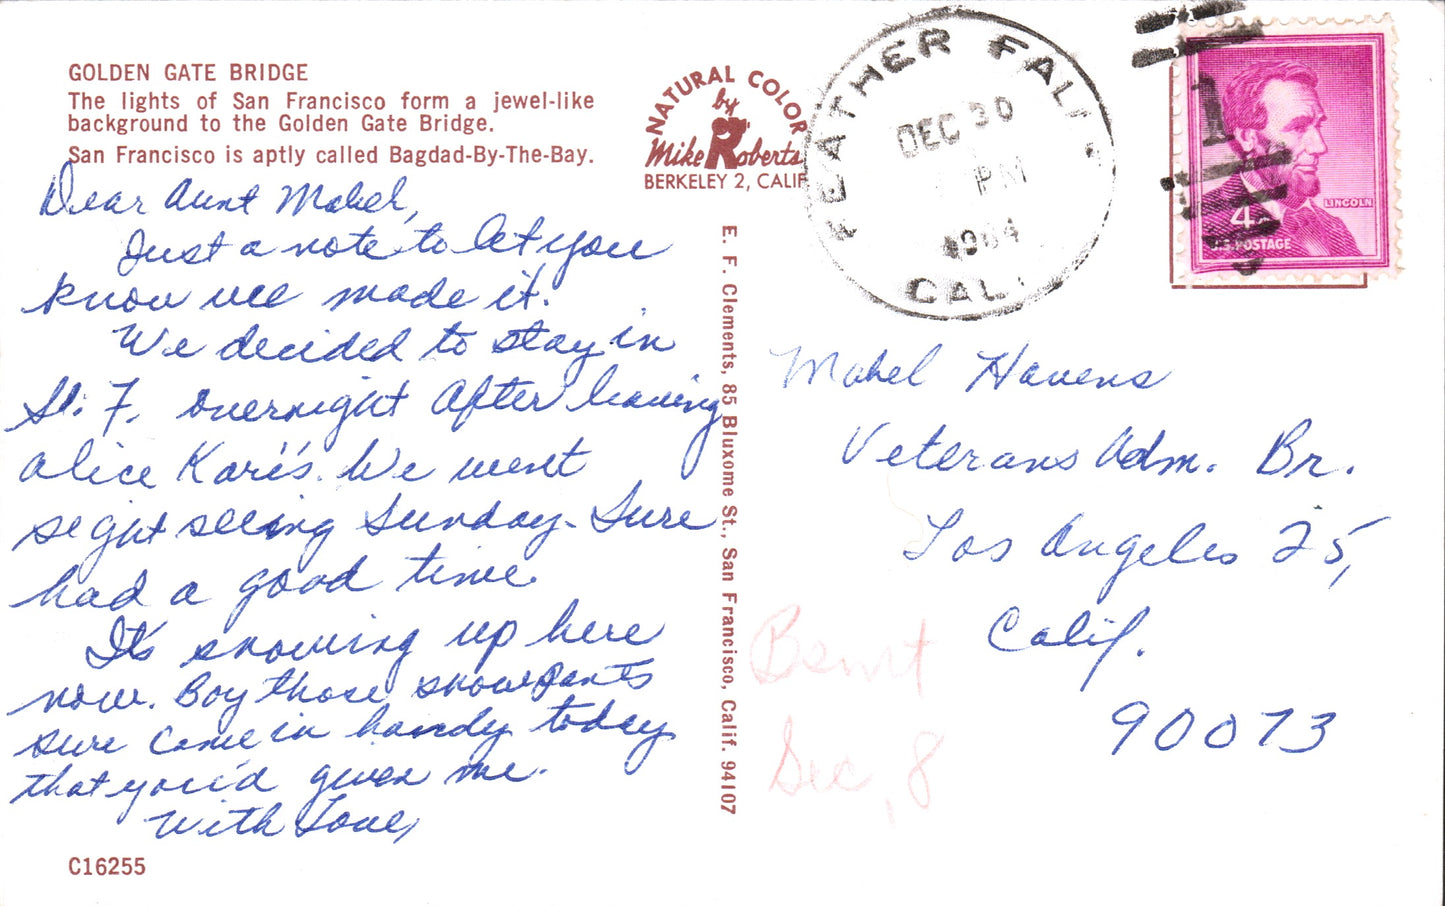 GOLDEN GATE BRIDGE
The lights of San Francisco form a jewel-like
background to the Golden Gate Bridge.
San Francisco is aptly called Bagdad-By-The-Bay.
NATURAL COLOR
by
Mike Roberts
BERKELEY 2, CALIF
FEATHER FALLS
DEC 30
PM
1964
CAL.
LINCOLN
4¢
U.S. POSTAGE
Dear Aunt Mabel,
Just a note to let you
know we made it.
We decided to stay in
S. F. overnight after leaving
Alice Kari's. We went
sight seeing Sunday - Sure
had a good time.
It's snowing up here
now. Boy those snowpants
sure came in handy today
that you'd given me.
With Love,
C16255
E. F. Clements, 85 Bluxome St., San Francisco, Calif. 94107
Mabel Havens
Veterans Adm. Br.
Los Angeles 25,
Calif.
90073
Bsmt
Sec, 8